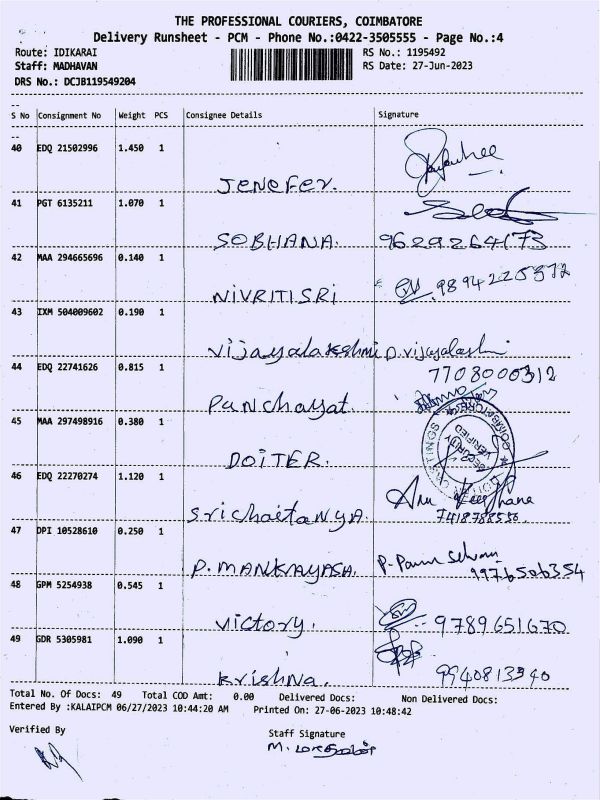 THE PROFESSIONAL COURIERS, COIMBATORE
Delivery Runsheet - PCM - Phone No.:0422-3505555 - Page No.:4
Route: IDIKARAI
RS No.: 1195492
Staff: MADHAVAN
RS Date: 27-Jun-2023
DRS No.: DCJB119549204
S No Consignment No Weight PCS Consignee Details Signature
40 EDQ 21502996 1.450 1
JENEFER.
41 PGT 6135211 1.070 1
SOBHANA. 9629264173
42 MAA 294665696 0.140 1
NIVRITISRI 9894225372
43 IXM 504009602 0.190 1
Vijayalakshmi D.Vijayalashmi
44 EDQ 22741626 0.815 1 7708000312
Panchayat.
45 MAA 297498916 0.380 1
DOITER.
SECURITY VERIFIED
46 EDQ 22270274 1.120 1
Srichaitanya. 7418788556.
47 DPI 10528610 0.250 1
P. MANKAYASA. 9976506354
48 GPM 5254938 0.545 1
Victory. 9789651670
49 GDR 5305981 1.090 1
Krishna. 9940813940
Total No. Of Docs: 49 Total COD Amt: 0.00 Delivered Docs: Non Delivered Docs:
Entered By :KALAIPCM 06/27/2023 10:44:20 AM Printed On: 27-06-2023 10:48:42
Verified By Staff Signature